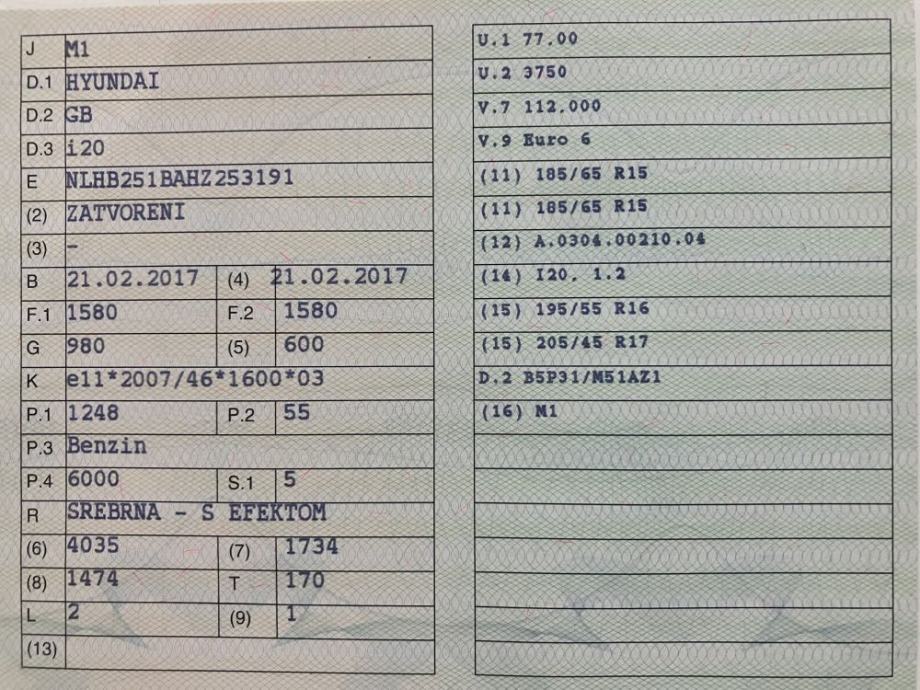 J M1
D.1 HYUNDAI
D.2 GB
D.3 i20
E NLHB251BAHZ253191
(2) ZATVORENI
(3) –
B 21.02.2017 (4) 21.02.2017
F.1 1580 F.2 1580
G 980 (5) 600
K e11*2007/46*1600*03
P.1 1248 P.2 55
P.3 Benzin
P.4 6000 S.1 5
R SREBRNA – S EFEKTOM
(6) 4035 (7) 1734
(8) 1474 T 170
L 2 (9) 1
(13)
U.1 77.00
U.2 3750
V.7 112.000
V.9 Euro 6
(11) 185/65 R15
(11) 185/65 R15
(12) A.0304.00210.04
(14) I20. 1.2
(15) 195/55 R16
(15) 205/45 R17
D.2 B5P31/M51AZ1
(16) M1